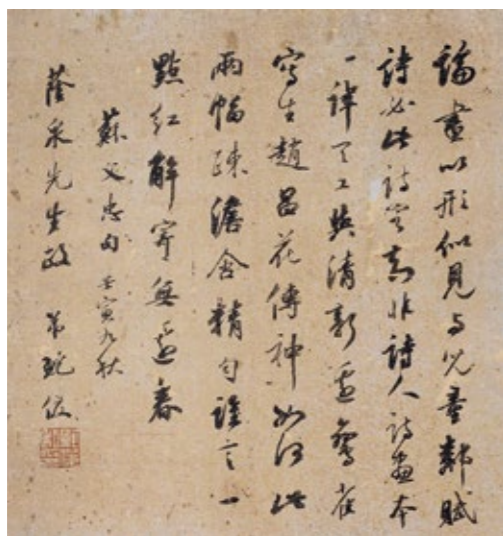 論畫以形似見與兒童鄰賦
詩必此詩定知非詩人詩畫本
一律天工與清新邊鸞雀
寫生趙昌花傳神如何此
兩幅疎澹含精勻誰言一
點紅解寄無邊春
蘇文忠句 壬寅九秋
蔭泉先生政 弟